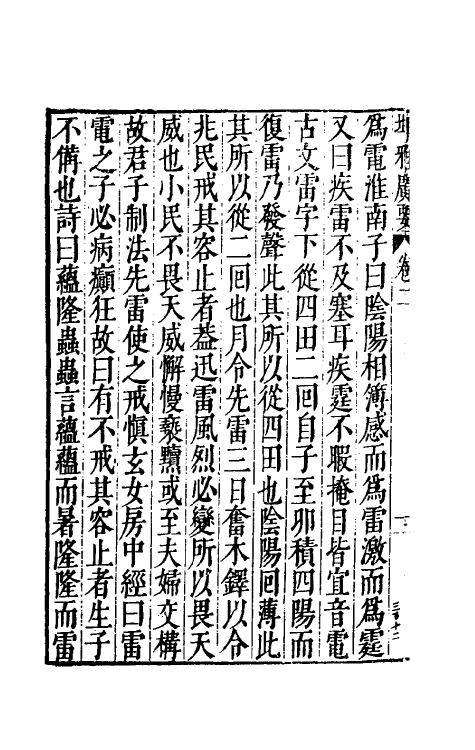 埤雅廣要 卷二
爲電淮南子曰陰陽相簿感而爲雷激而爲霆
又曰疾雷不及塞耳疾霆不暇掩目皆宜音電
古文雷字下從四田二囘自子至卯積四陽而
復雷乃發聲此其所以從四田也陰陽囘薄此
其所以從二囘也月令先雷三日奮木鐸以令
兆民戒其容止者葢迅雷風烈必變所以畏天
威也小民不畏天威懈慢褻黷或至夫婦交構
故君子制法先雷使之戒愼玄女房中經曰雷
電之子必病癲狂故曰有不戒其容止者生子
不備也詩曰蘊隆蟲蟲言蘊蘊而暑隆隆而雷